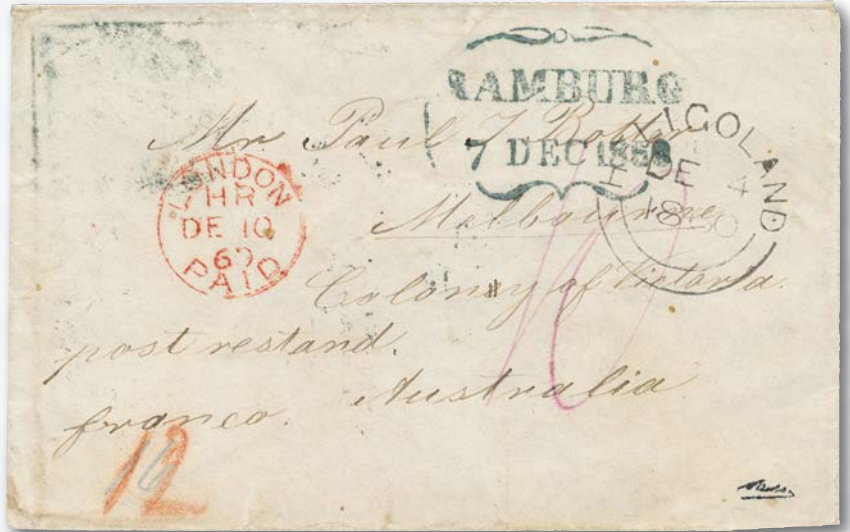 HAMBURG
7 DEC 1860
HELIGOLAND
DE
4
1860
LONDON
HR
DE 10
60
PAID
Mr Paul J
Melbourne
Colony of Victoria.
post restand.
franco. Australia
12